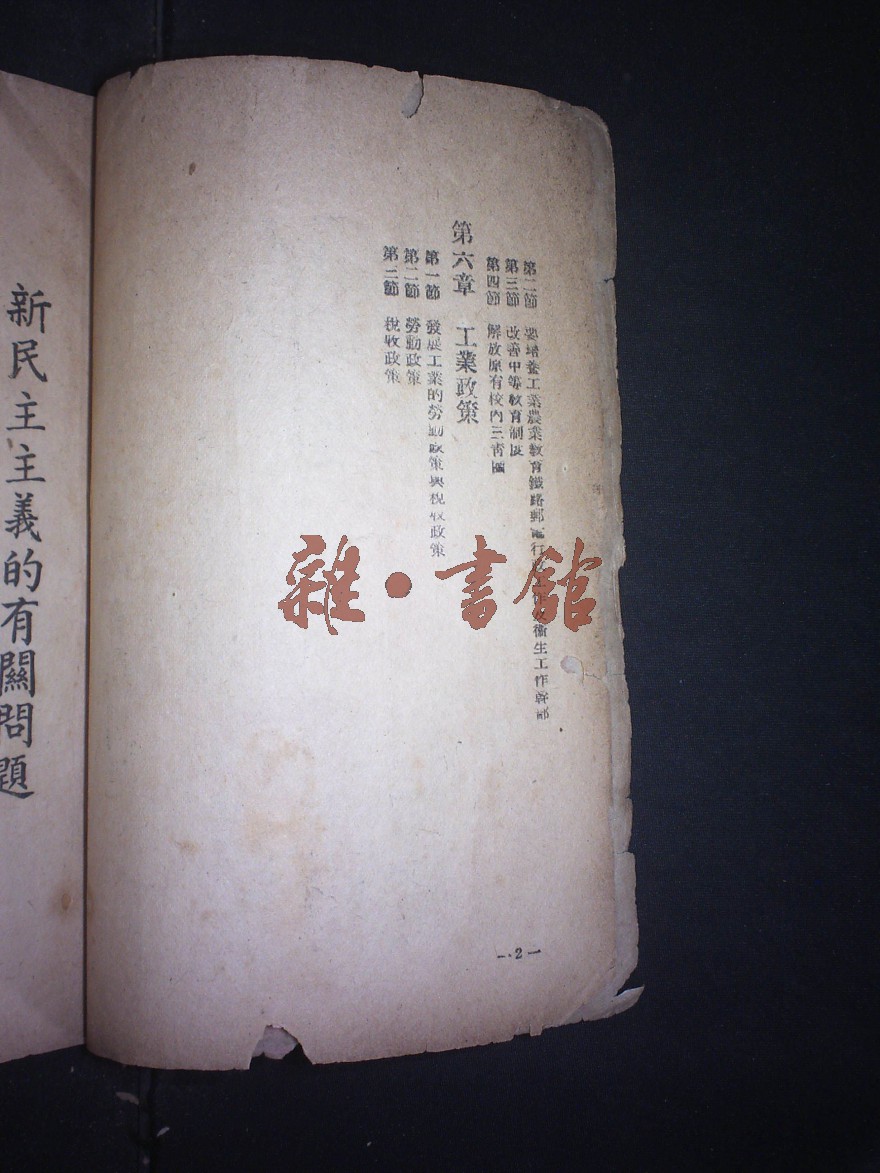 第二節　要培養工業農業教育鐵路郵電行政工作及衞生工作幹部
第三節　改善中等教育制度
第四節　解放原有校內三靑團
第六章　工業政策
第一節　發展工業的勞動政策與稅收政策
第二節　勞動政策
第三節　稅收政策
—2—
新民主主義的有關問題
雜·書館